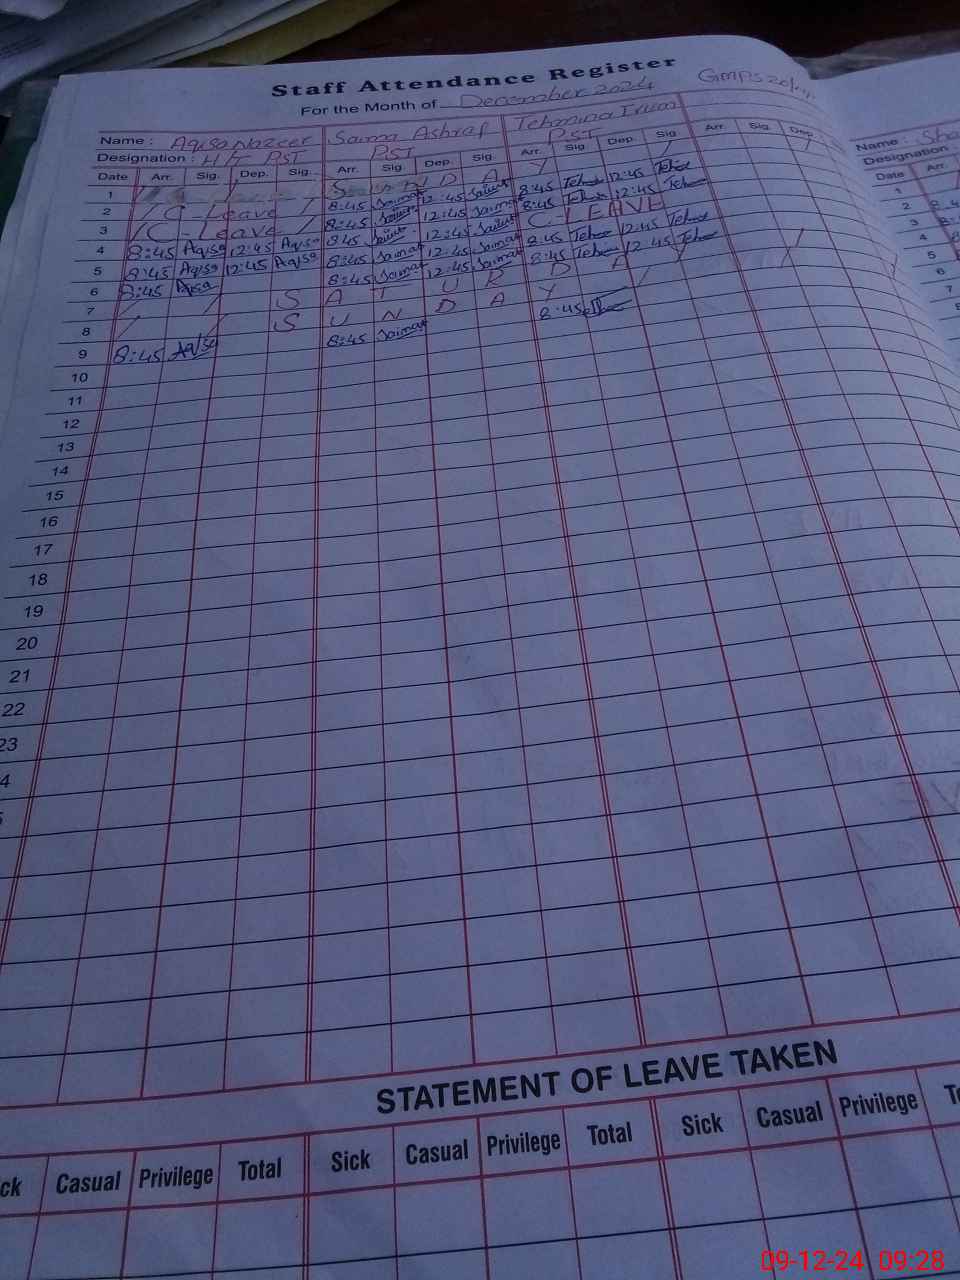 Staff Attendance Register
For the Month of December 2024 GMPS
Name : Aqisa Nazeer Saima Ashraf Tehmina Irum Name : Sha
Designation : H/T PST PST PST Designation
Date Arr. Sig. Dep. Sig. Arr. Sig. Dep. Sig. Arr. Sig. Dep. Sig. Arr. Sig. Dep. Date Arr.
1 S U N D A Y 1
2 C-Leave 8:45 Saima 12:45 Saima 8:45 Tehm 12:45 Tehm 2
3 C-Leave 8:45 Saima 12:45 Saima 8:45 Tehm 12:45 Tehm 3
4 8:45 Aqisa 12:45 Aqisa 8:45 Saima 12:45 Saima C-LEAVE 4
5 8:45 Aqisa 12:45 Aqisa 8:45 Saima 12:45 Saima 8:45 Tehm 12:45 Tehm 5
6 8:45 Aqisa 8:45 Saima 12:45 Saima 8:45 Tehm 12:45 Tehm 6
7 S A T U R D A Y 7
8 S U N D A Y 8
9 8:45 Aqisa 8:45 Saima 8:45
10
11
12
13
14
15
16
17
18
19
20
21
22
23
4
STATEMENT OF LEAVE TAKEN
ck Casual Privilege Total Sick Casual Privilege Total Sick Casual Privilege To
09-12-24 09:28